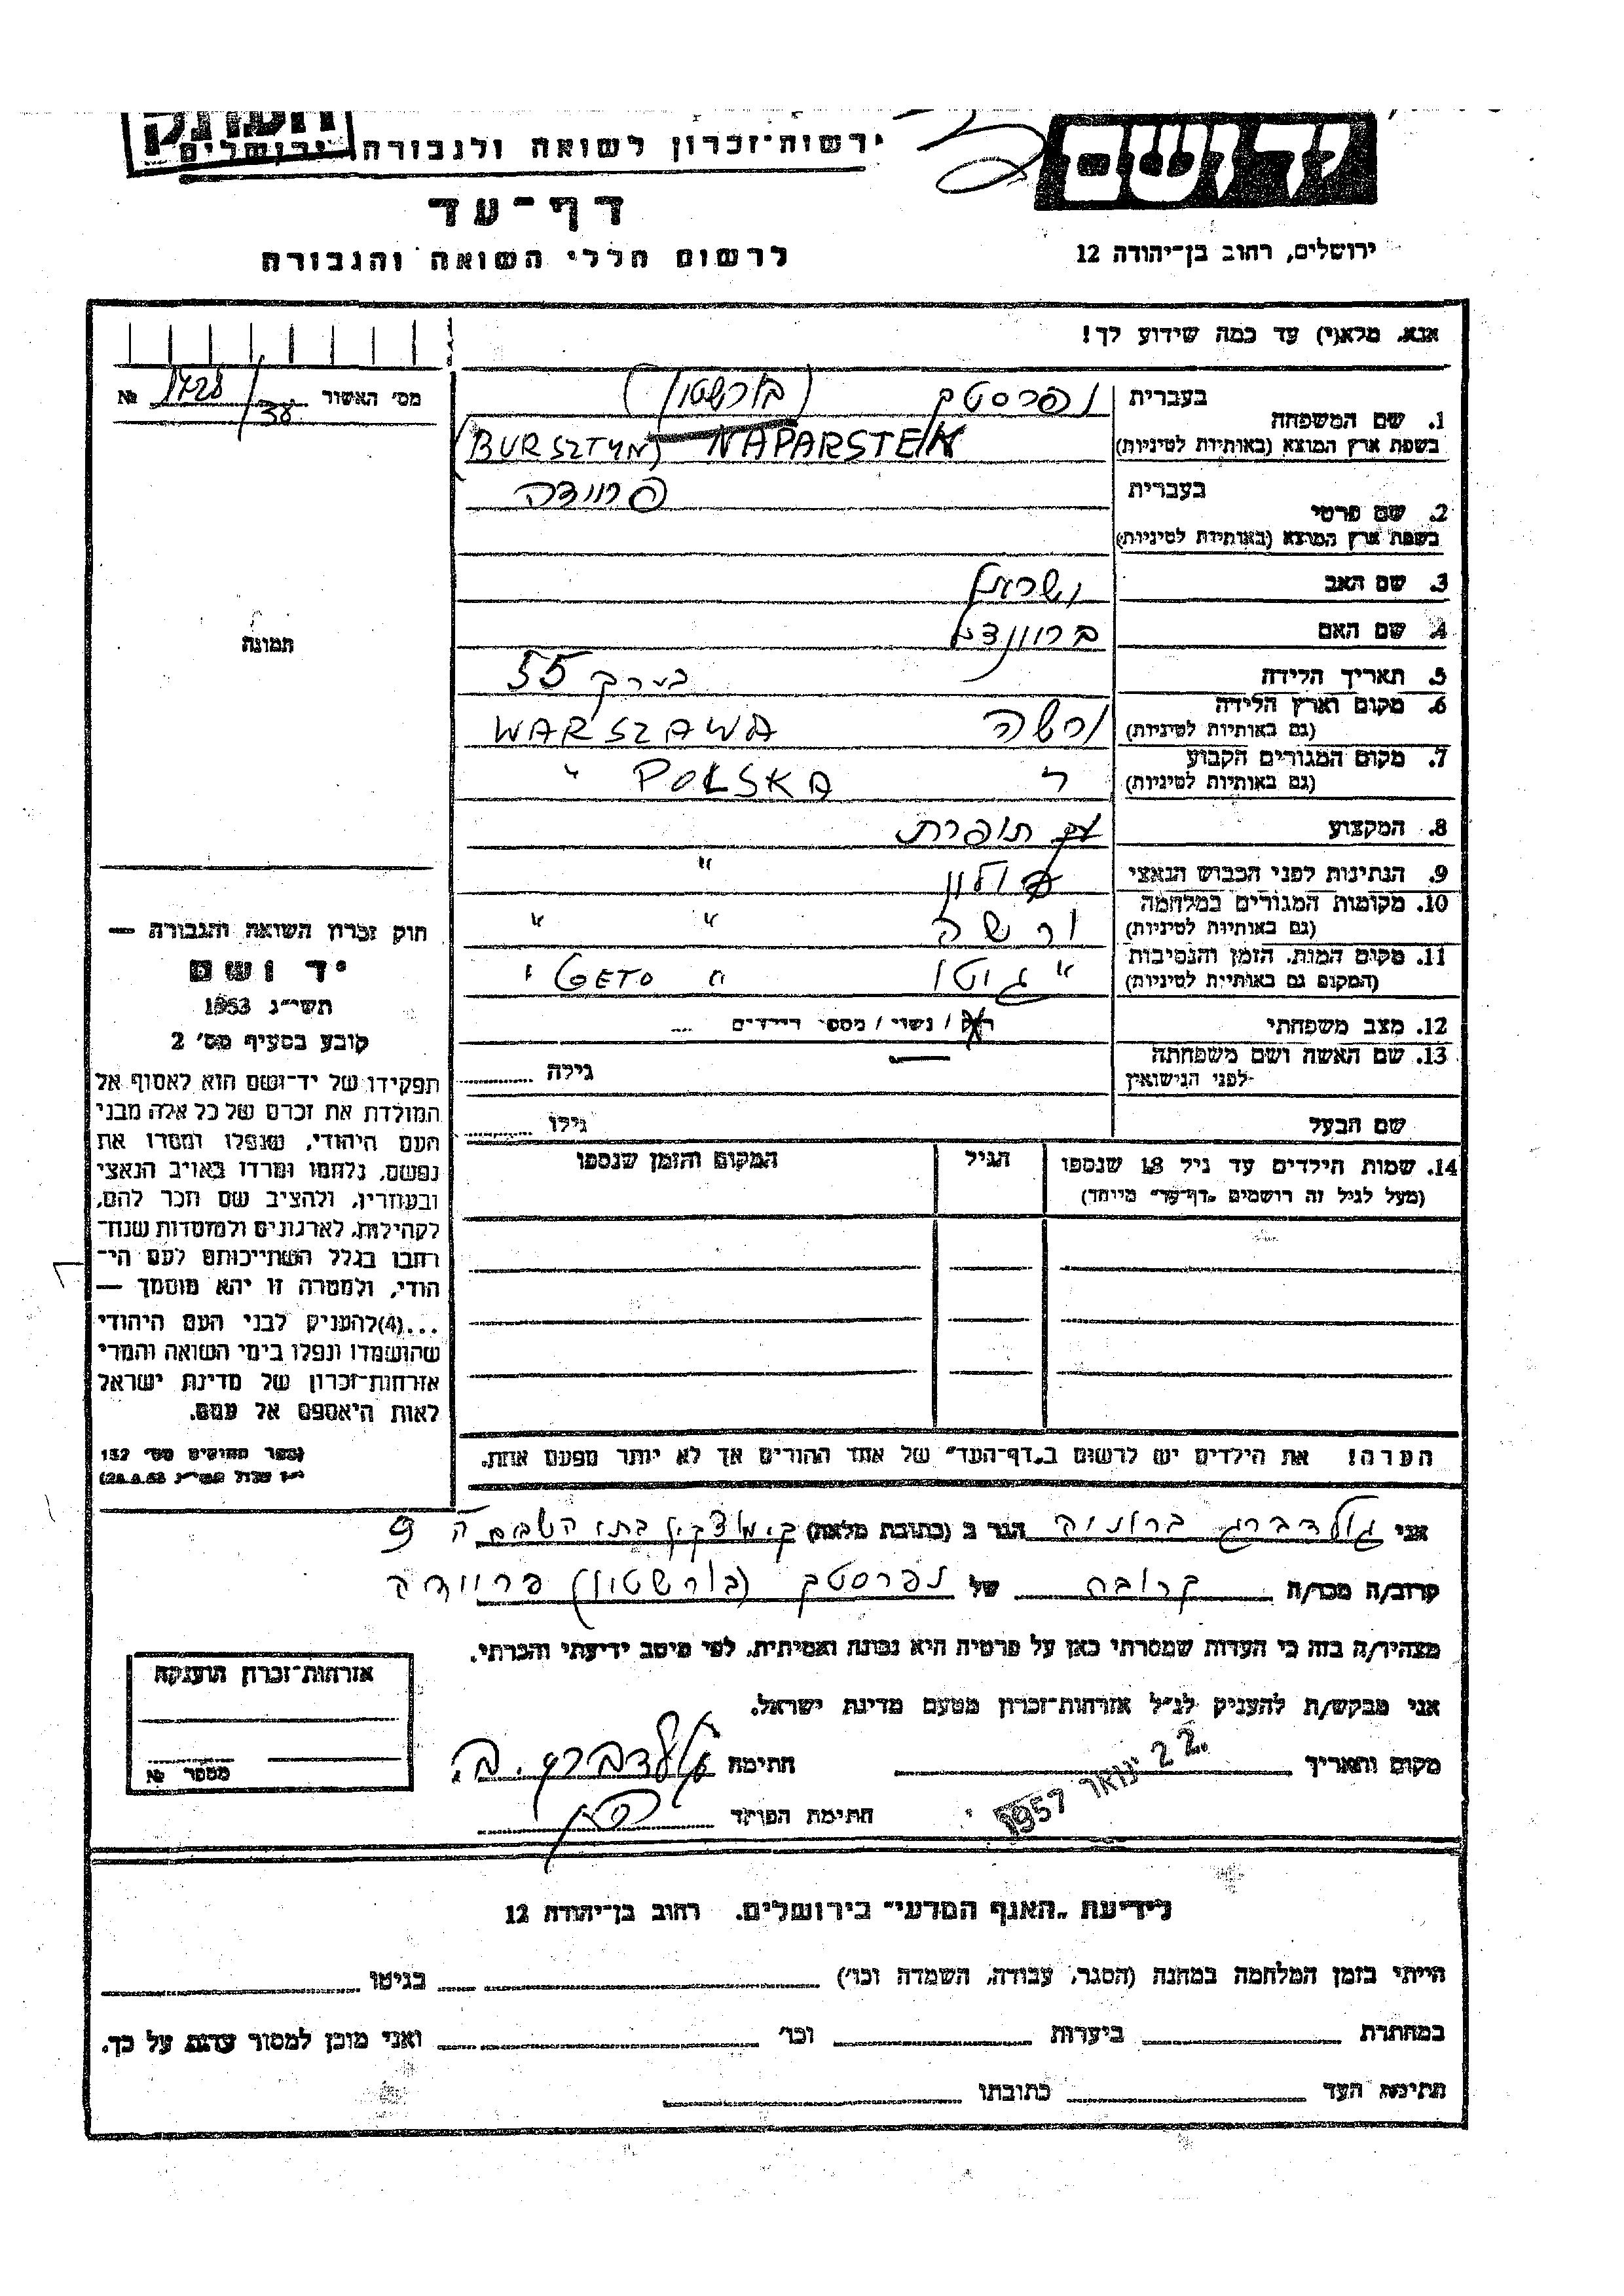 העתק
ירשות־זכרון לשואה ולגבורה, ירושלים
יד ושם
דף־עד
לרשום חללי השואה והגבורה
ירושלים, רחוב בן־יהודה 12
אנא, מלא(י) עד כמה שידוע לך!
מס' האשור 1728/38 №
1. שם המשפחה
בעברית נפרסטק (בורשטין)
בשפת ארץ המוצא (באותיות לטיניות) (BURSZTYN) NAPARSTEK
2. שם פרטי
בעברית פריידה
בשפת ארץ המוצא (באותיות לטיניות)
3. שם האב ישראל
4. שם האם
5. תאריך הלידה בערך 55
6. מקום וארץ הלידה
(גם באותיות לטיניות) ורשה WARSZAWA
7. מקום המגורים הקבוע
(גם באותיות לטיניות) POLSKA "
8. המקצוע תופרת
9. הנתינות לפני הכבוש הנאצי פולין "
10. מקומות המגורים במלחמה
(גם באותיות לטיניות) ורשה " "
11. מקום המות, הזמן והנסיבות
(המקום גם באותיות לטיניות) " גיטו " GETO "
12. מצב משפחתי רוק / נשוי / מספר הילדים ...
13. שם האשה ושם משפחתה
לפני הנישואין — גילה
שם הבעל גילו
14. שמות הילדים עד גיל 18 שנספו
(מעל לגיל זה רושמים "דף־עד" מיוחד)
הגיל
המקום והזמן שנספו
הערה! את הילדים יש לרשום ב"דף־העד" של אחד ההורים אך לא יותר מפעם אחת.
תמונה
חוק זכרון השואה והגבורה —
יד ושם
תשי"ג 1953
קובע בסעיף מס' 2
תפקידו של יד־ושם הוא לאסוף אל
המולדת את זכרם של כל אלה מבני
העם היהודי, שנפלו ומסרו את
נפשם, נלחמו ומרדו באויב הנאצי
ובעוזריו, ולהציב שם וזכר להם,
לקהילות, לארגונים ולמוסדות שנח־
רבו בגלל השתייכותם לעם הי־
הודי, ולמטרה זו יהא מוסמך —
...(4) להעניק לבני העם היהודי
שהושמדו ונפלו בימי השואה והמרי
אזרחות־זכרון של מדינת ישראל
לאות היאספם אל עמם.
(ספר החוקים מס' 132
י"ז אלול תשי"ג 28.8.53)
אני גולדברג ברוניה הגר ב (כתובת מלאה) ק. מוצקין 9
קרוב/ה מכר/ה קרובה של נפרסטק (בורשטין) פריידה
מצהיר/ה בזה כי העדות שמסרתי כאן על פרטיה היא נכונה ואמיתית, לפי מיטב ידיעתי והכרתי.
אני מבקש/ת להעניק לנ"ל אזרחות־זכרון מטעם מדינת ישראל.
מקום ותאריך 22 ינואר 1957 חתימה גולדברג. ב.
חתימת הפוקד
אזרחות־זכרון הוענקה
מספר №
לידיעת "האגף המדעי" בירושלים, רחוב בן־יהודה 12
הייתי בזמן המלחמה במחנה (הסגר, עבודה, השמדה וכו') בגיטו
במחתרת ביערות וכו' ואני מוכן למסור עדות על כך.
חתימת העד כתובתו